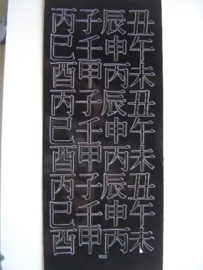 丙子辰丑
巳壬申午
酉甲丙未
丙子辰丑
巳壬申午
酉甲丙未
丙子辰丑
巳壬申午
酉甲丙未